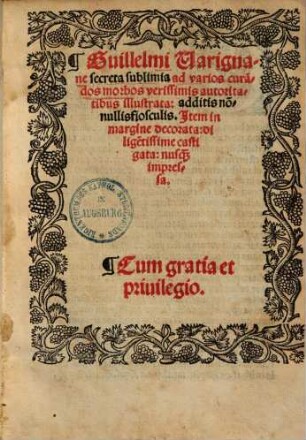 ¶ Guillelmi Uarigna-
ne secreta sublimia ad varios curã-
dos morbos verissimis autorita-
tibus illustrata: additis nõ-
nullis flosculis. Item in
margine decorata: di
ligẽtissime casti
gata: nusq̃
impres-
sa.
IN
AUGSBURG
¶ Cum gratia et
priuilegio.